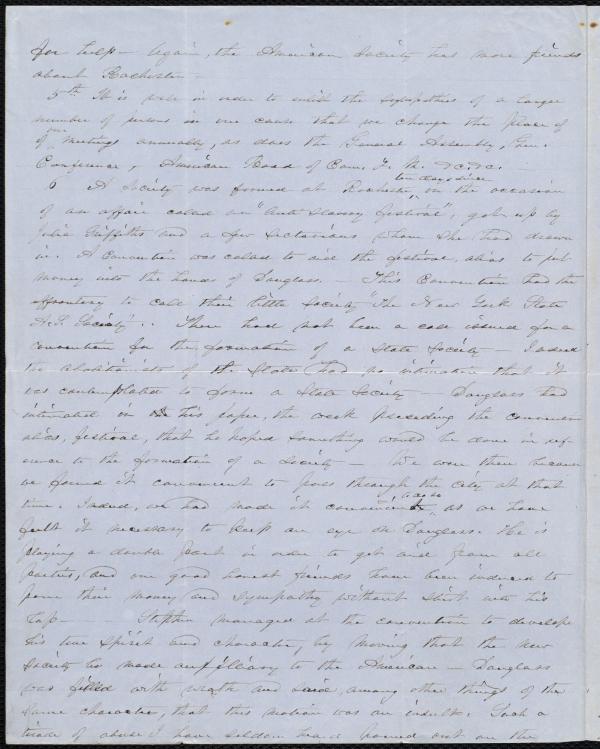 for help – Again, the American Society has more friends
about Rochester –
5th It is wise in order to enlist the sympathies of a larger
number of persons in our cause that we change the place of
of our meetings annually, as does the General Assembly, Gen.
Conference, American Board of Com. F. M. &c &c. –
ten days since
6 A Society was formed at Rochester, on the occasion
of an affair called an "Anti Slavery festival", got up by
Julia Griffiths and a few sectarians whom she had drawn
in. A Convention was called to aid the festival, alias to put
money into the hands of Douglass. – This Convention had the
effrontery to call their little Society "The New York State
A.S. Society". There had not been a call issued for a
convention for the formation of a State Society – Indeed
the abolitionists of the State had no intimation that it
was contemplated to form a State Society – Douglass had
intimated in his paper, the week preceding the convention
alias, festival, that he hoped something would be done in ref
erence to the formation of a Society – We were there because
we found it convenient to pass through the city at that
time. Indeed, we had made it convenient to do so, as we have
felt it necessary to keep an eye on Douglass. He is
playing a double part in order to get aid from all
parties, and our good honest friends have been induced to
pour their money and sympathy without stint into his
lap – Stephen managed at the convention to develope
his true spirit and character, by moving that the new
Society be made auxiliary to the American – Douglass
was filled with wrath and said, among other things of the
same character, that this motion was an insult. Such a
tirade of abuse I have seldom heard poured out on the